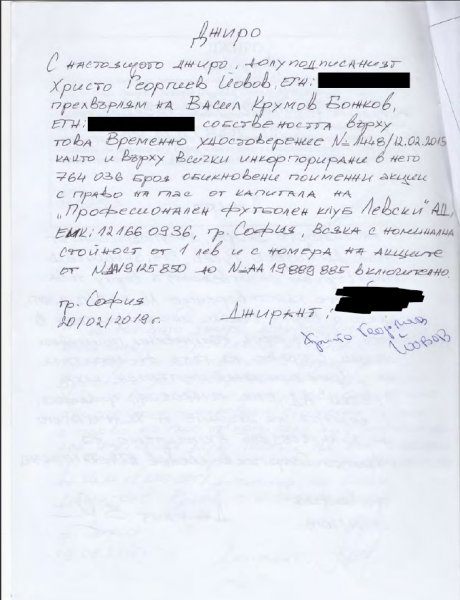 Джиро
С настоящото джиро, долуподписаният
Христо Георгиев Йовов, ЕГН:
прехвърлям на Васил Крумов Божков,
ЕГН: собствеността върху
това Временно удостоверение № 1448/12.02.2015
както и върху всички инкорпорирани в него
764 036 броя обикновени поименни акции
с право на глас от капитала на
„Професионален футболен клуб Левски" АД,
ЕИК: 121660936, гр. София, всяка с номинална
стойност от 1 лев и с номера на акциите
от до № АА 19889885 включително
гр. София
20/02/2019г. Джирант:
Христо Георгиев
Йовов